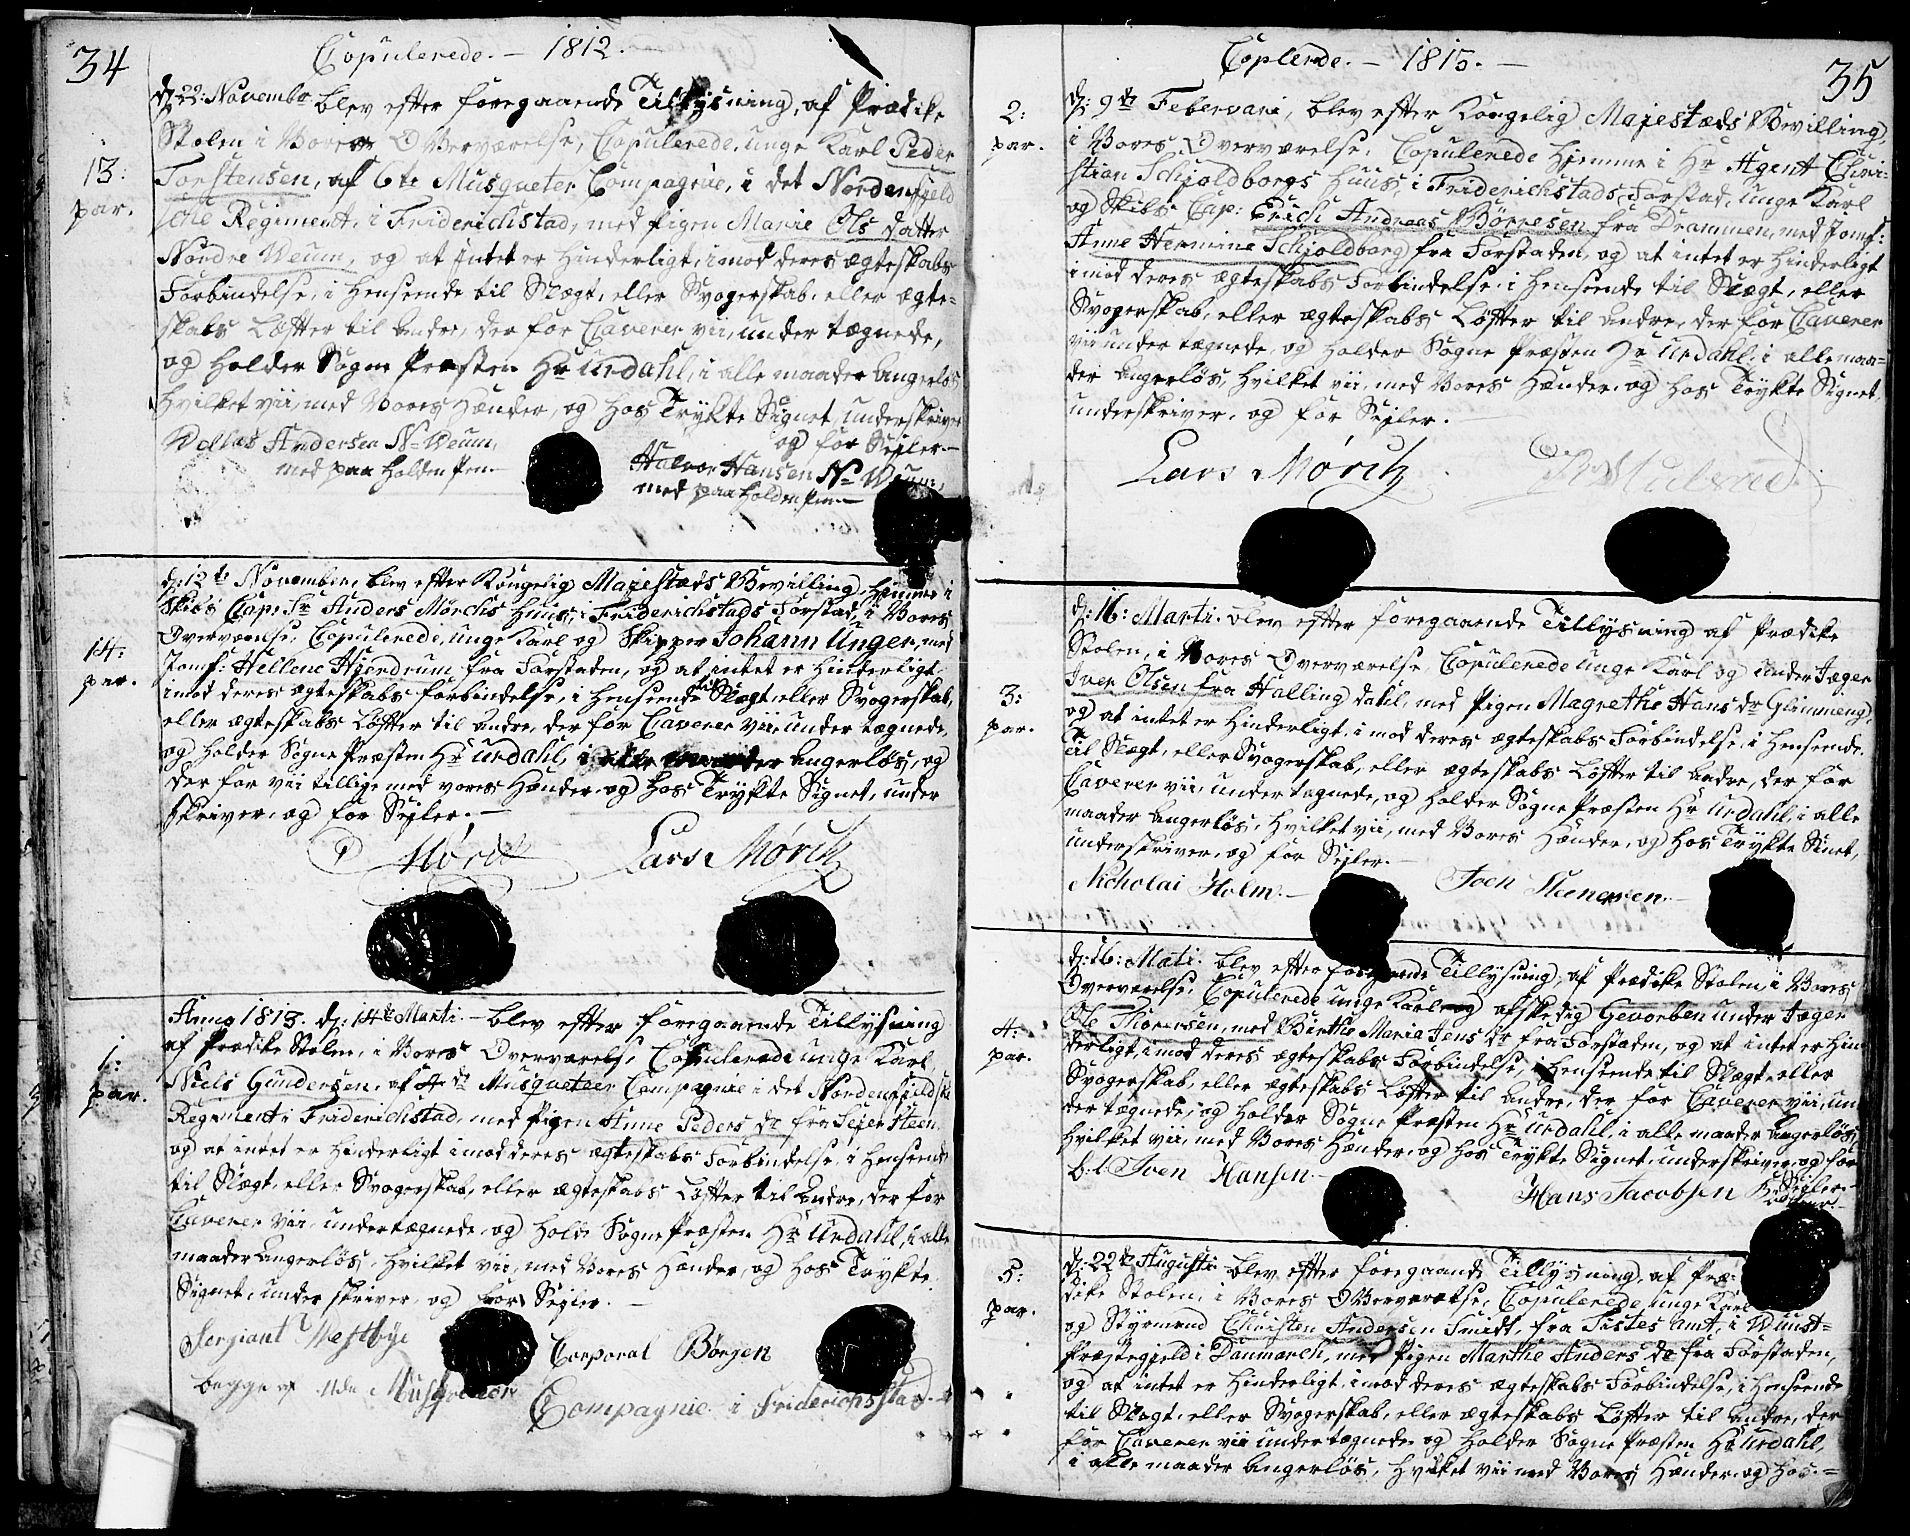 34
Copulerede. – 1812. –
13:
par.
d: 22: Novembr blev efter foregaaende Tillysning, af Prædike
Stolen i Vores Overværelse, Copulerede, unge Karl Peder
Torstensen, af 6te Musqueter Compagnie, i det Nordenfield
sche Regiment, i Friderichstad, med Pigen Marie Ols datter
Nordre Weum, og at intet er Hinderligt, imod deres ægteskabs
Forbindelse, i Henseende til Slægt, eller Svogerskab, eller ægte-
skabs Løfter til andre, der for Caverer vii, under tægnede,
og Holder Sogne Præsten Hr Urdahl, i alle maader angerløs
Hvilket vii, med Vores Hænder, og Hos Trykte Signet, underskriver
og for Sejler. –
Andersen N: Weum,
med paa Holden Pen. –
Halvor Hansen N: Weum,
med paa Holden Pen. –
14:
par.
d: 12te November, blev efter Kongelig Majestæds Bevilling, Hiemme i
Skibs Cap: Sr Anders Mørchs Huus, i Friderichstads Forstad, i Vores
Overværense, Copulerede, unge Karl og Skipper Johann Unger, med
Jomf: Hellene Hjordrum fra Forstaden, og at intet er Hinderligt,
imod deres ægteskabs Forbindelse, i Henseende til Slægt, eller Svogerskab,
eller ægteskabs Løfter til andre, der for Caverer vii, under tægnede,
og Holder Sogne Præsten Hr Urdahl, i alle maader angerløs, og
der for vii tillige med vores Hænder, og Hos Trykte Signet, under
skriver, og for Sejler. –
Mørch
Lars Mørch
1:
par.
Anno 1813. d: 14de Marti. – blev efter foregaaende Tillysning
af Prædike Stolen, i Vores Overværelse Copulerede unge Karl
Niels Gundersen, af 4de Musqueteer Compagnie i det Nordenfieldske
Regiment i Friderichstad, med Pigen Anne Peders dr fra Sejer Steen
og at intet er Hinderligt imod deres ægteskabs Forbindelse, i Henseende
til Slægt, eller Svogerskab, eller ægteskabs Løfter til andre, der for
Caverer vii, undertægnede, og Holde Sogne Præsten Hr Urdahl, i alle
maader angerløs, Hvilket vii, med Vores Hænder, og Hos Trykte
Signet, under skriver, og for Sejler. –
Sergiant Westbye
Corporal Børgen
begge af Musqueteer
Compagnie i Friderichsstad. –
35
Coplerde. – 1815. –
2:
par.
d: 9de Febervari, blev efter Kongelig Majestæds Bevilling,
i Vores Overværelse, Copulerede Hjemme i Hr Agent Chri-
stian Schjoldborgs Huus, i Friderichstads Forstad, unge Karl
og Skibs Cap: Erich Andreas Børresen fra Drammen, med Jomf:
Anne Hermine Schjoldborg fra Forstaden, og at intet er Hinderligt
imod deres ægteskabs Forbindelse, i Henseende til Slægt, eller
Svogerskab, eller ægteskabs Løfter til andre, der for Caverer
vii under tægnede, og Holder Sogne Præsten Hr Urdahl, i alle maa-
der angerløs, Hvilket vii, med Vores Hænder, og Hos Trykte Signet,
underskriver, og for Sejler. –
Lars Mørch
3:
par.
d: 16: Marti. blev efter foregaaende Tillysning af Prædike
Stolen, i Vores Overværelse, Copulerede unge Karl og under Jæger
Iver Olsen fra Halling dahl, med Pigen Magrethe Hans dr Glimmeng,
og at intet er Hinderligt, i mod deres ægteskabs Forbindelse, i Henseende
til Slægt, eller Svogerskab, eller ægteskabs Løfter til andre, der for
Caverer vii, under tægnede, og Holder Sogne Præsten Hr Urdahl, i alle
maader angerløs, Hvilket vii, med Vores Hænder, og Hos Trykte Sinet,
underskriver, og for Sejler. –
Nicholai Holm. –
Joen
4:
par.
d: 16: Mati. blev efter foregaaende Tillysning, af Prædike Stolen i Vores
Overværelse, Copulerede unge Karl og afskedig Gevorben under Jæger
Ole Thoresen, med Birthe Maria Jens dr fra Forstaden, og at intet er Hin
derligt, imod deres ægteskabs Forbindelse, i Henseende til Slægt, eller
Svogerskab, eller ægteskabs Løfter til andre, der for Caverer vii, un
der tægnede, og Holder Sogne Præsten Hr Urdahl, i alle maader angerløs,
Hvilket vii, med Vores Hænder, og Hos Trykte Signet, underskriver, og for
Sejler. –
Iven Hansen. –
Hans Jacobsen
5:
par.
d: 22de Augusti blev efter foregaaende Tillysning, af Præ-
dike Stolen, i Vores Overværelse, Copulerede, unge Karl
og Styrmand Christen Andersen Smidt, fra Tistes Amt, i Wunst-
Præstegjeld i Danmarch, med Pigen Marthe Anders dr fra Forstaden,
og at intet er Hinderligt, imod deres ægteskabs Forbindelse, i Henseende
til Slægt, eller Svogerskab, eller ægteskabs Løfter til andre, der
for Caverer vii undertægnede, og Holder Sogne Præsten Hr Urdahl,
i alle maader angerløs, Hvilket vii med Vores Hænder, og Hos. –